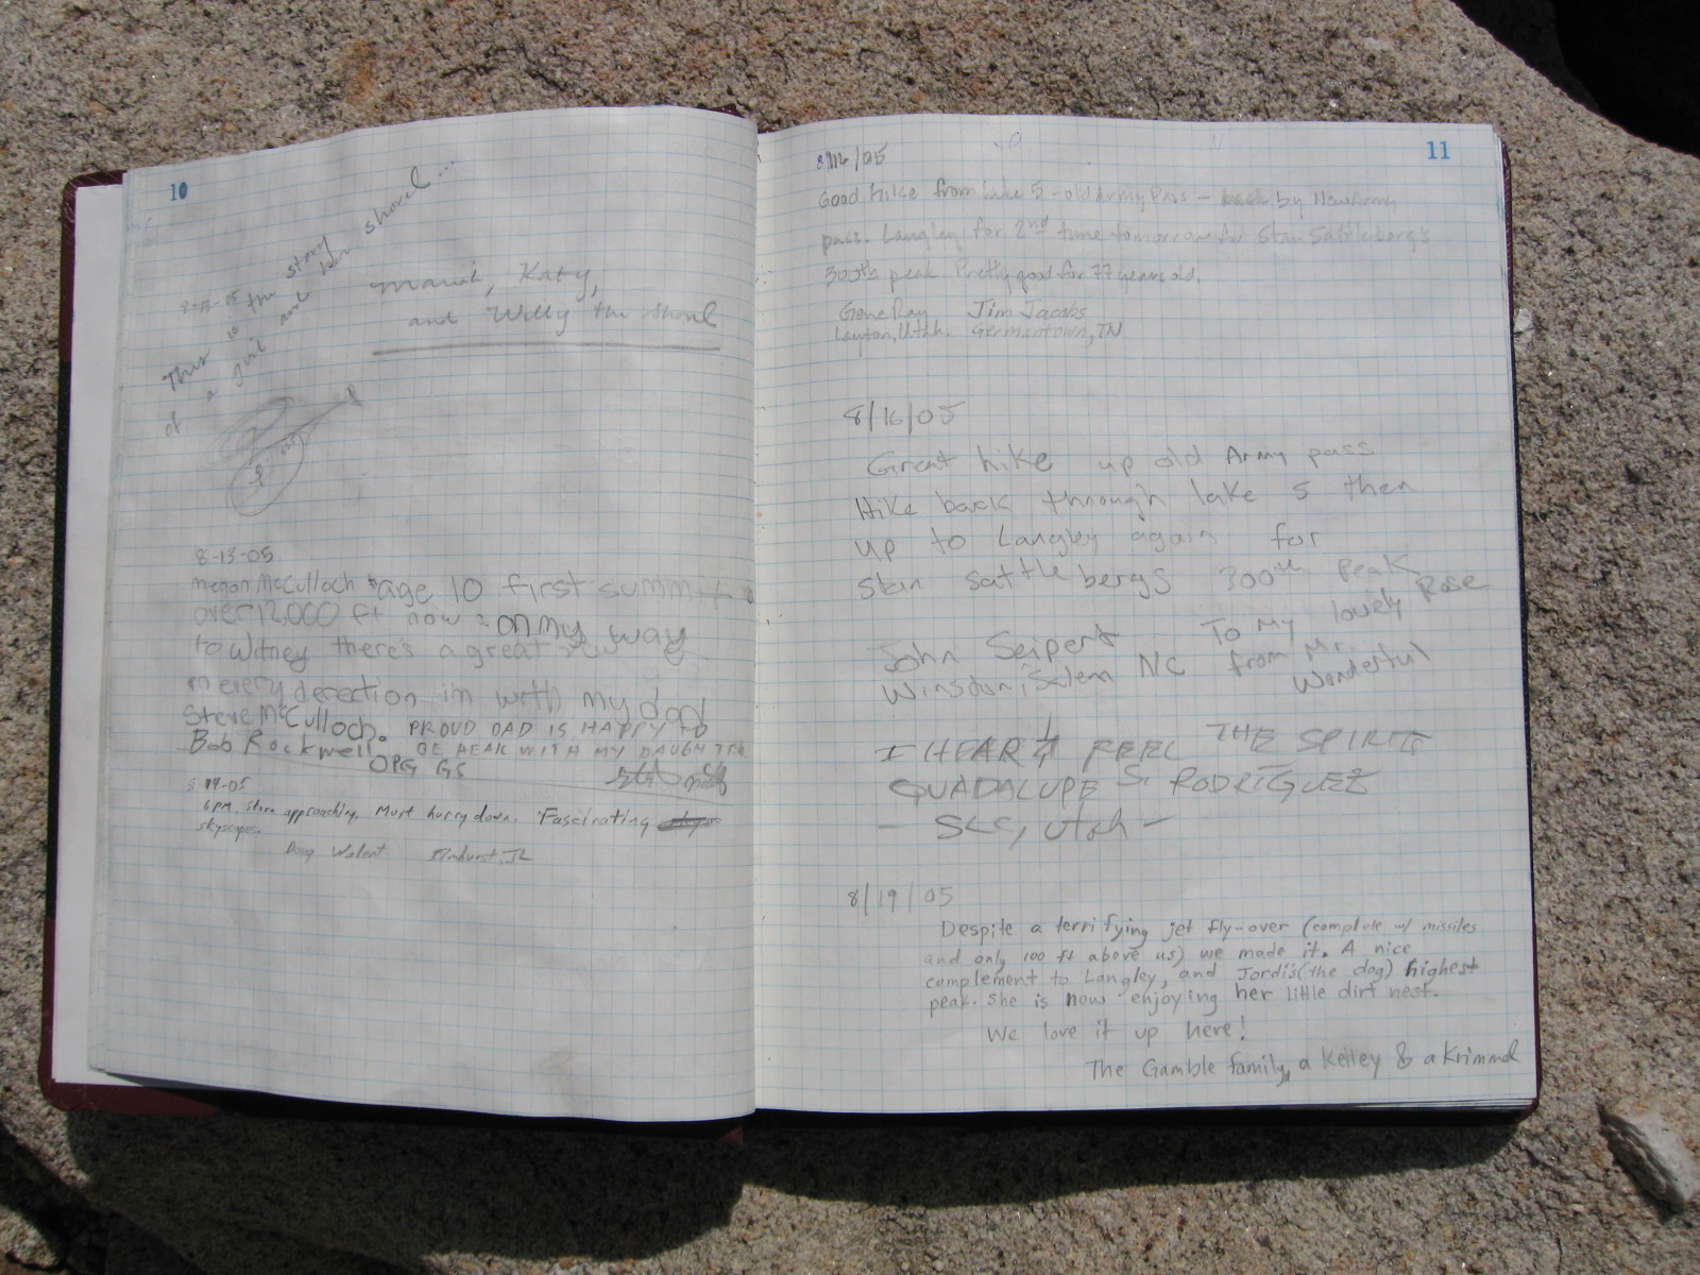 10
8-13-05
This is the story
of a girl and her shovel...
Mariah, Katy,
and Willy the shovel
8-13-05
megan McCulloch age 10 first summit
over 12,000 ft now on my way
to Witney there's a great
in every derection im with my dad
Steve McCulloch. PROUD DAD IS HAPPY TO
Bob Rockwell BE HEAR WITH MY DAUGHTER
OPG GS
6PM. Storm approaching. Must hurry down. Fascinating
skyscapes.
Doug Elmhurst, IL
11
8/16/05
Good hike from Lake 5 - old Army Pass - back by New Army
pass. Langley for 2nd time tomorrow for Stan Sattleberg's
300th peak. Pretty good for 77 years old.
Gene Ray Jim Jacobs
Layton, Utah. Germantown, TN
8/16/05
Great hike up old Army pass
Hike back through lake 5 then
up to Langley again for
Stan Sattlebergs 300th Peak
John Seipert To My lovely Rose
Winston, Salem NC from Mr.
Wonderful
I HEAR & FEEL THE SPIRIT
GUADALUPE S. RODRIGUEZ
- SLC, Utah -
8/19/05
Despite a terrifying jet fly-over (complete w/ missiles
and only 100 ft above us) we made it. A nice
complement to Langley, and Jordi's (the dog) highest
peak. She is now enjoying her little dirt nest.
We love it up here!
The Gamble family, a Kelley & a Krimmel